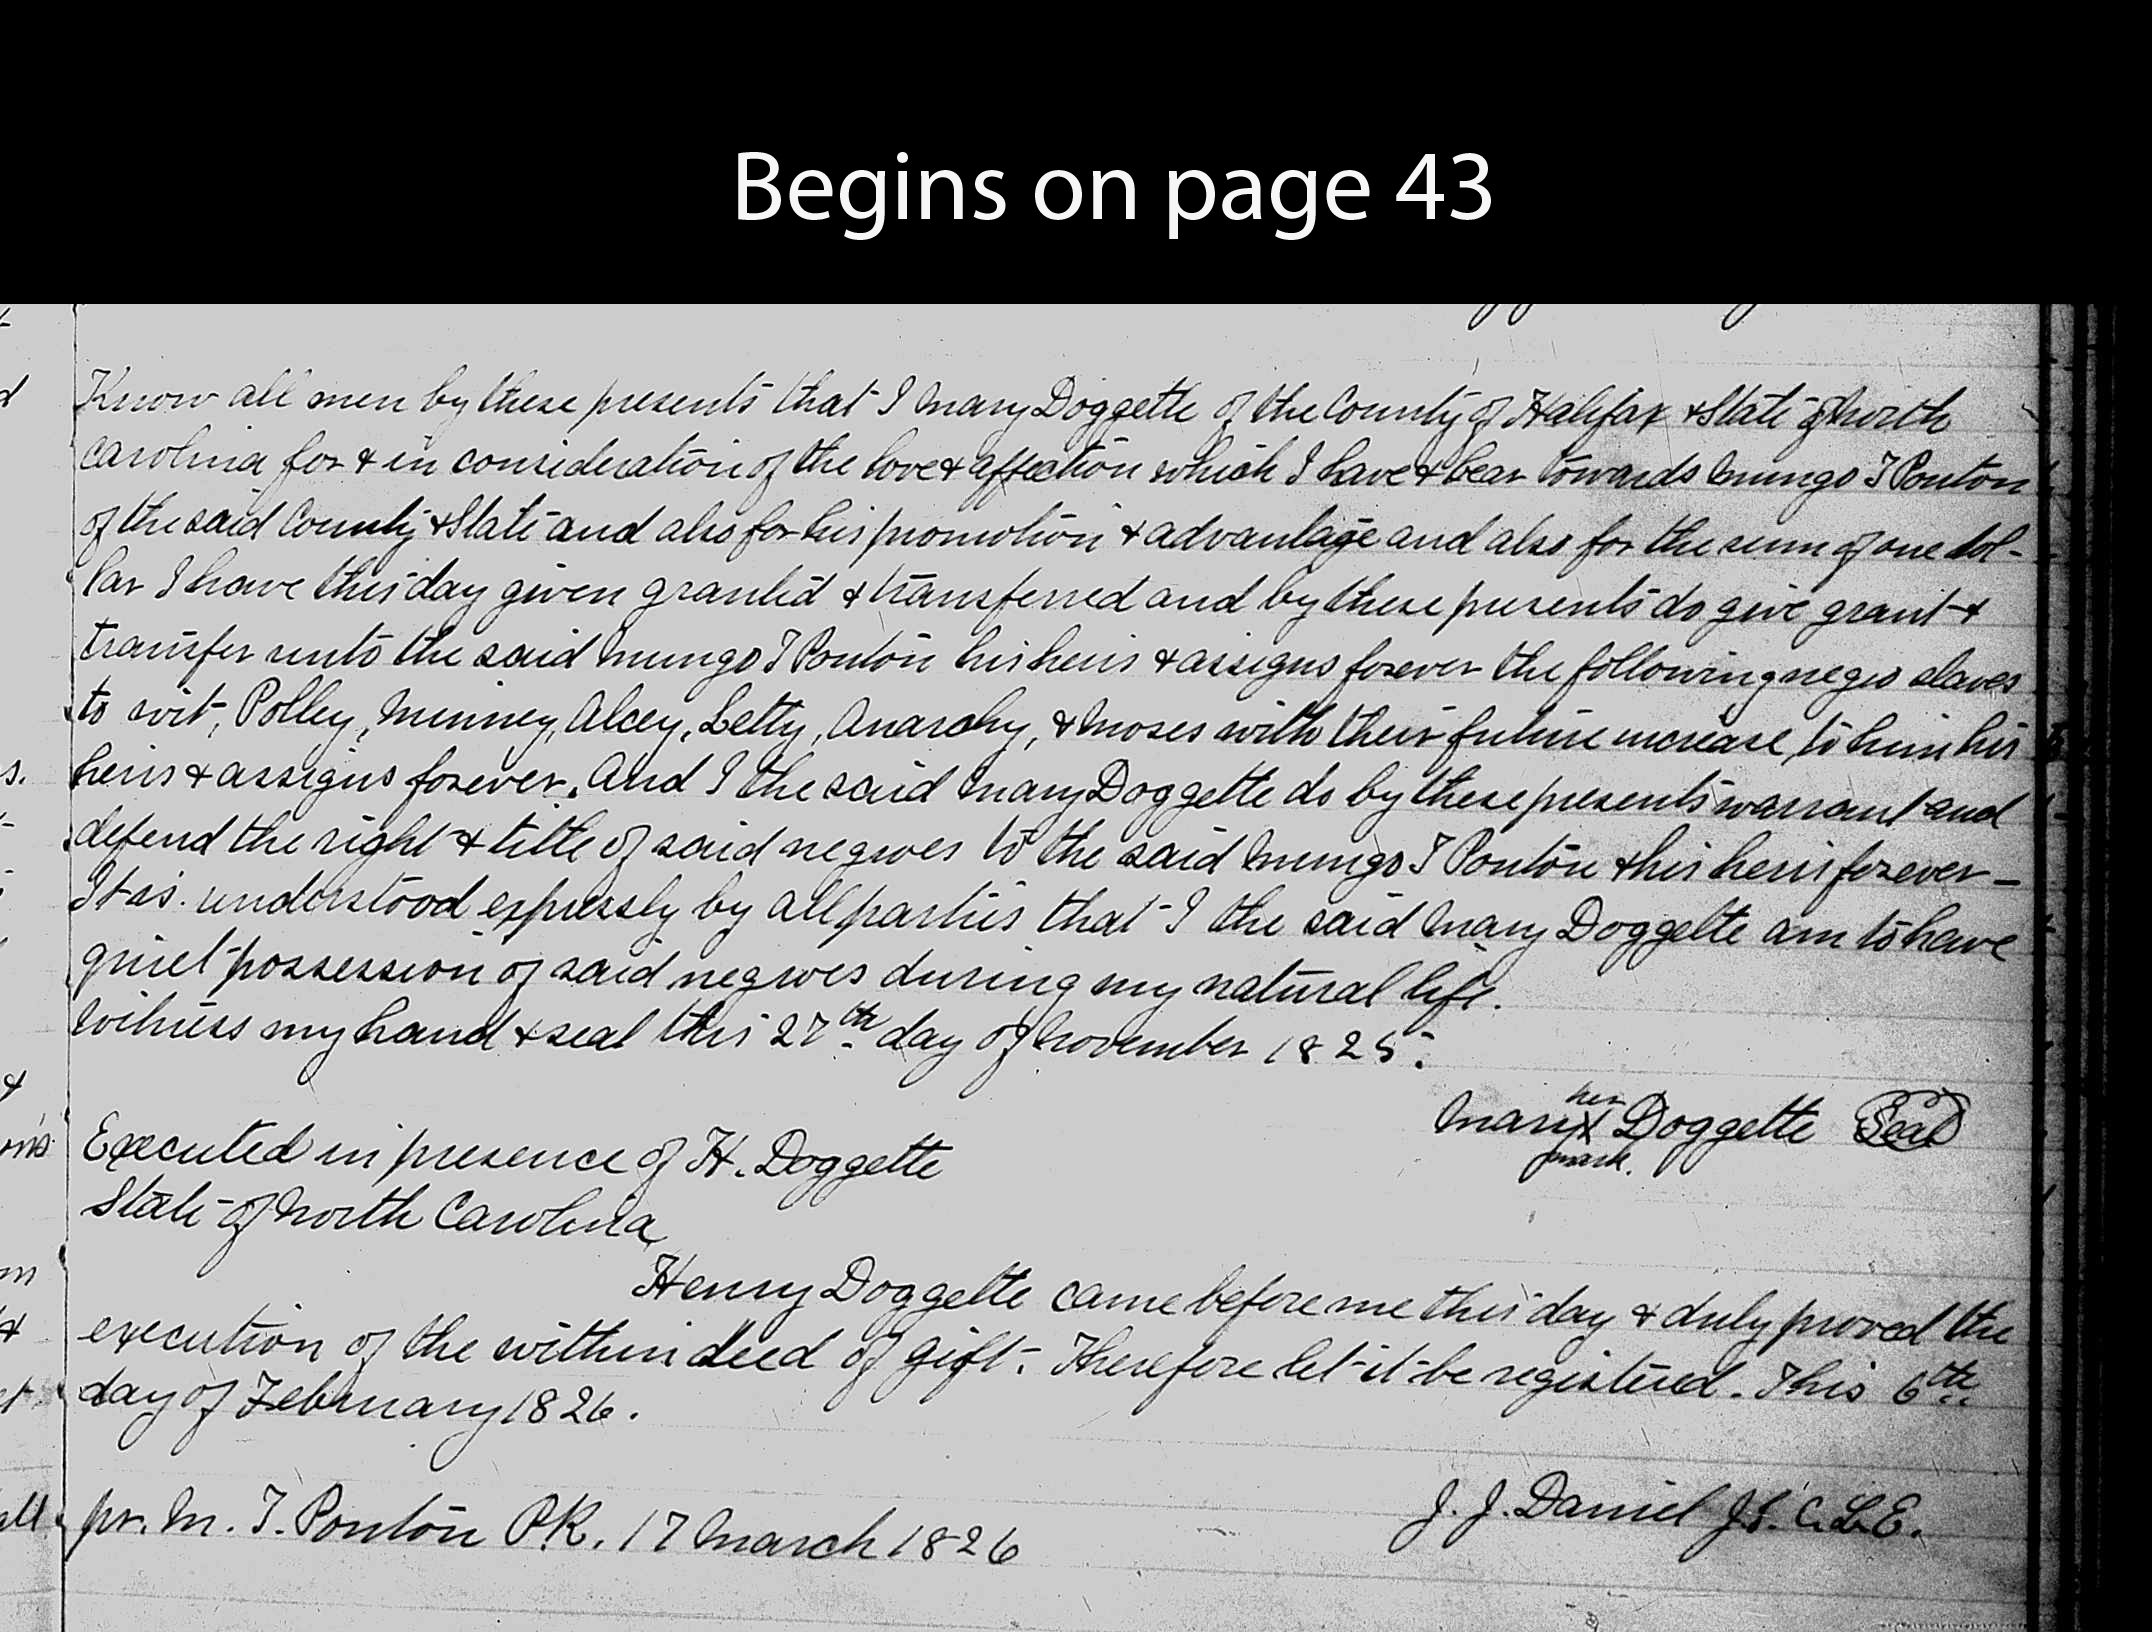 Begins on page 43
Know all men by these presents that I Mary Doggette of the County of Halifax & State of North
Carolina for & in consideration of the love & affection which I have & bear towards Mungo T Ponton
of the said County & State and also for his promotion & advantage and also for the sum of one dol-
lar I have this day given granted & transferred and by these presents do give grant &
transfer unto the said Mungo T Ponton his heirs & assigns forever the following negro slaves
to wit, Polley, Minney, Alcey, Letty, Anarchy, & Moses with their future increase, to him his
heirs & assigns forever. And I the said Mary Doggette do by these presents warrant and
defend the right & title of said negroes to the said Mungo T Ponton & his heirs forever -
It is understood expressly by all parties that I the said Mary Doggette am to have
quiet possession of said negroes during my natural life.
Witness my hand & seal this 27th day of November 1825.
her
Mary X Doggette Seal
mark.
Executed in presence of H. Doggette
State of North Carolina
Henry Doggette came before me this day & duly proved the
execution of the within deed of gift. Therefore let it be registered. This 6th
day of February 1826.
J. J. Daniel J.S.C.L.E.
pr. M. T. Ponton P.R. 17 March 1826